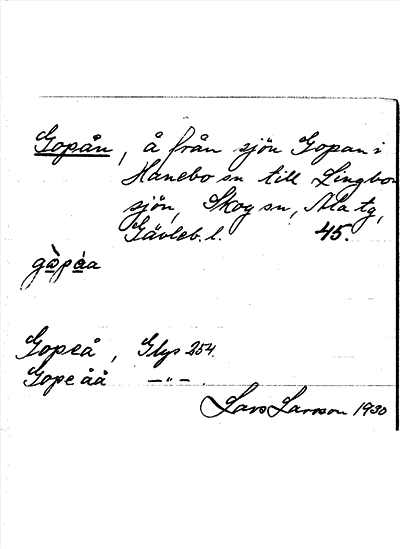 Gopån, å från sjön Gopan i
Hanebo sn till Lingbo-
sjön, Skog sn, Ala tg,
Gävleb. l. 45.
gὼpása
Gopeå, Glys 254.
Gopeåå —"—.
Lars Larsson 1930